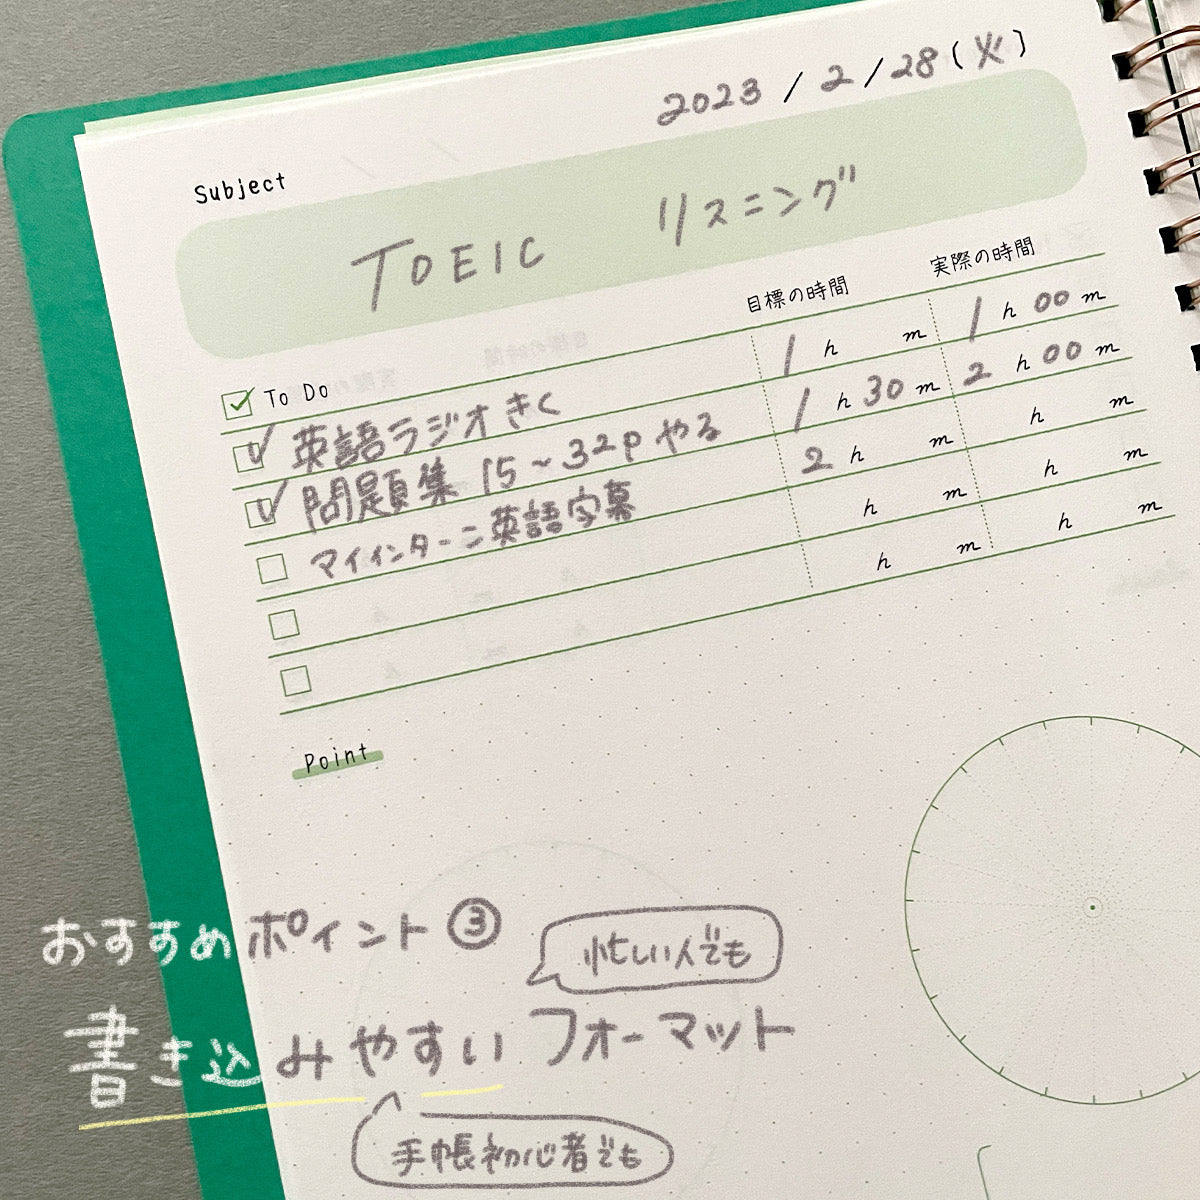 2023 / 2 / 28 (火)
Subject
TOEIC リスニング
目標の時間 実際の時間
To Do 1 h m 1 h 00 m
英語ラジオきく 1 h 30 m 2 h 00 m
問題集 15~32p やる 2 h m h m
マイインターン英語字幕 h m h m
h m h m
Point
おすすめポイント③
忙しい人でも
書き込みやすいフォーマット
手帳初心者でも